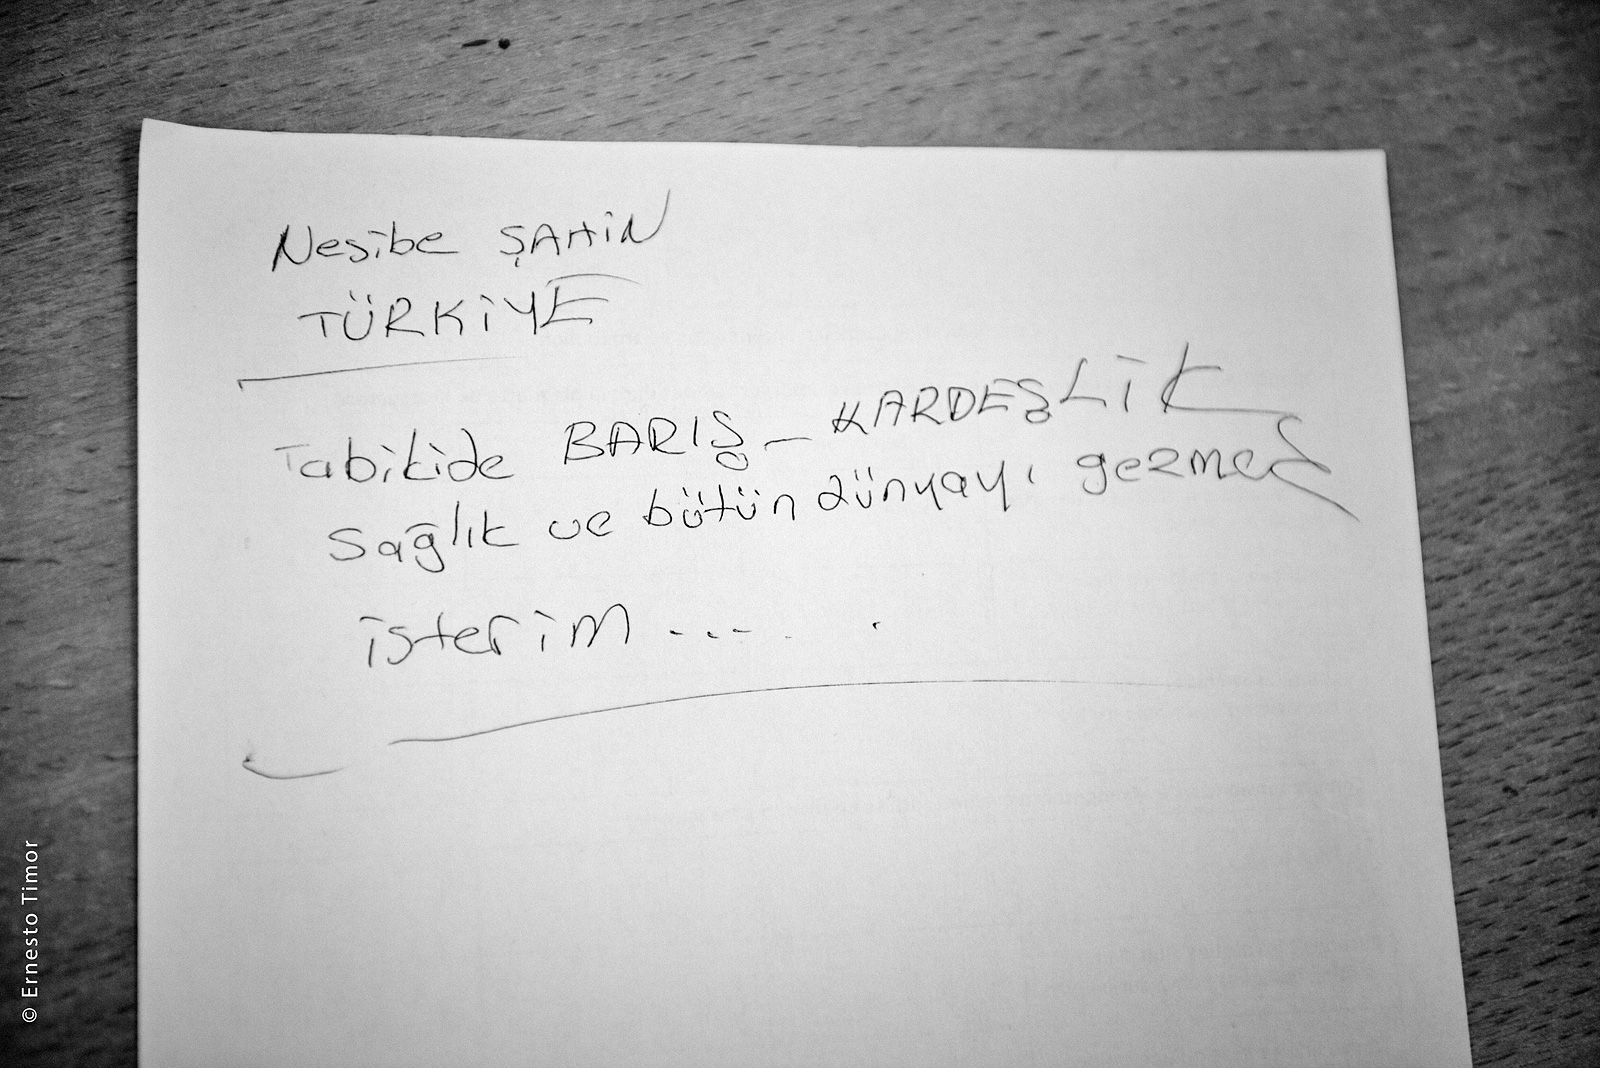 Nesibe ŞAHİN
TÜRKİYE
Tabikide BARIŞ - KARDEŞLİK
Sağlık ve bütün dünyayı gezmek
isterim .... .
© Ernesto Timor